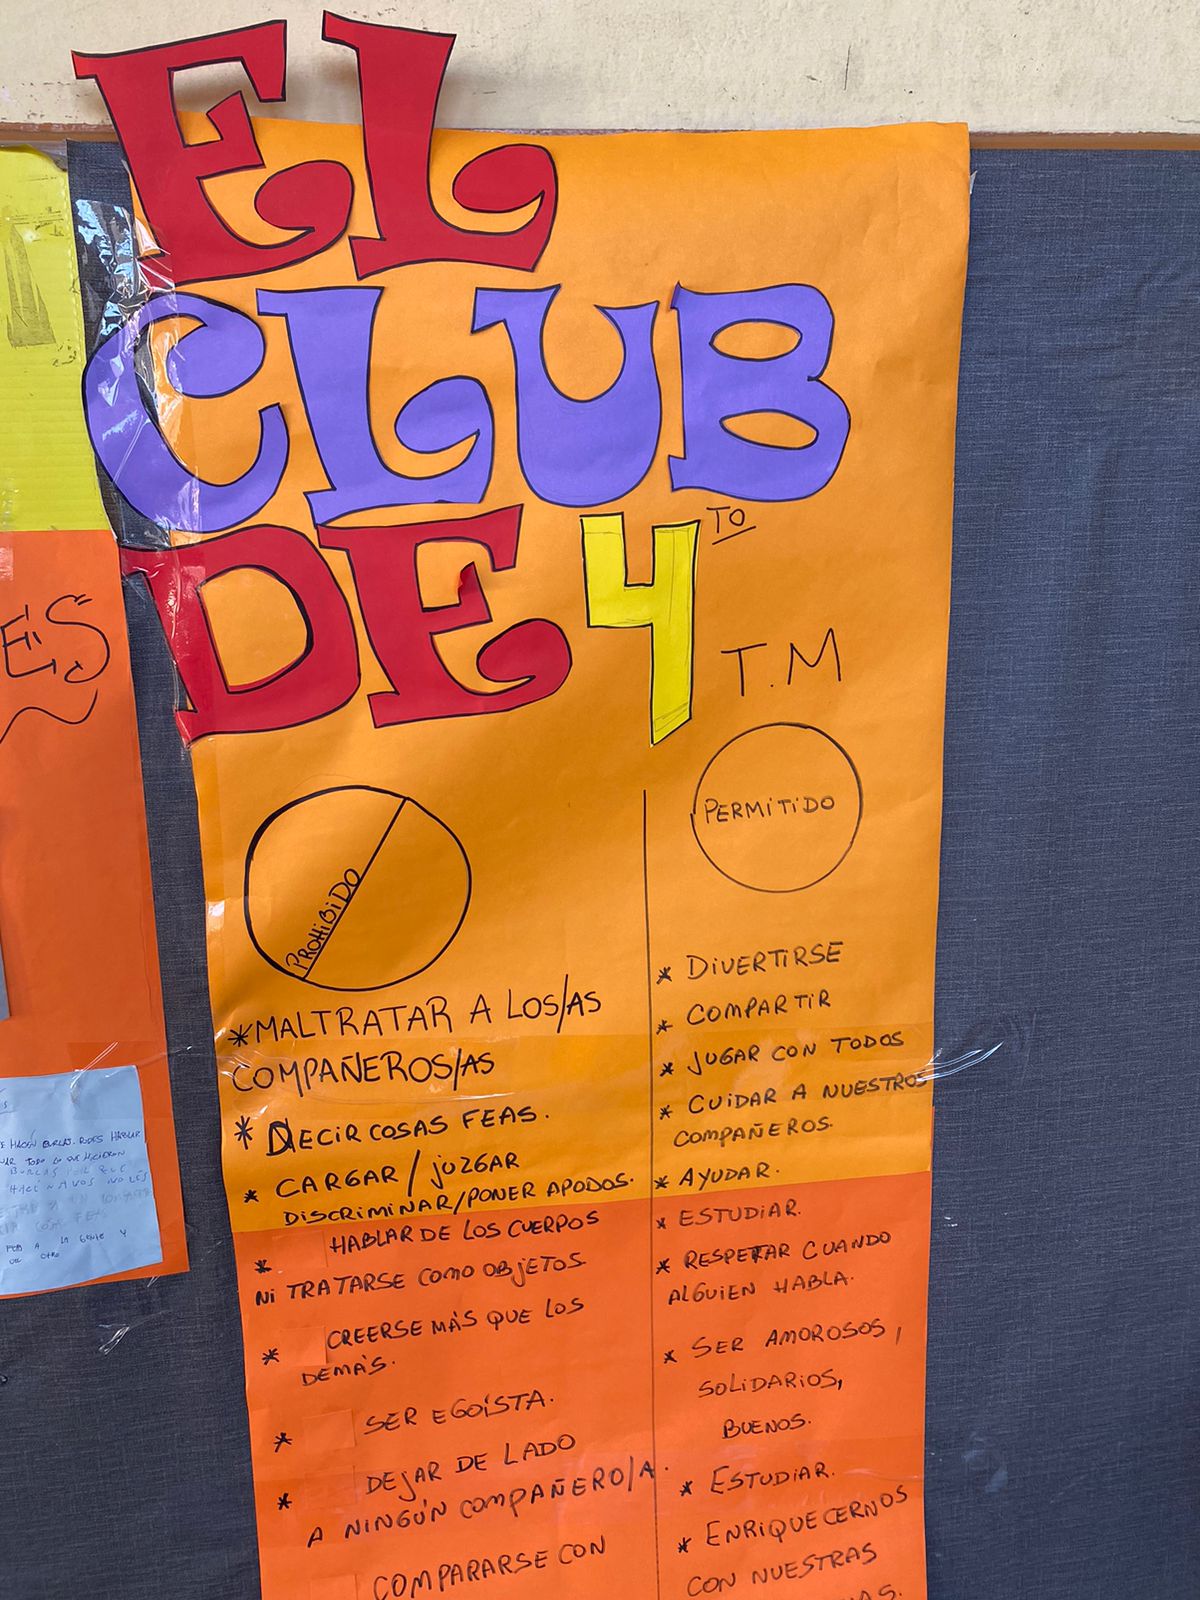 EL
CLUB
DE 4TO
T.M
PROHIBIDO
*MALTRATAR A LOS/AS
COMPAÑEROS/AS
* DECIR COSAS FEAS.
* CARGAR/JUZGAR
DISCRIMINAR/PONER APODOS.
* HABLAR DE LOS CUERPOS
Ni TRATARSE COMO OBJETOS.
* CREERSE MÁS QUE LOS
DEMÁS.
* SER EGOÍSTA.
* DEJAR DE LADO
A NINGÚN COMPAÑERO/A.
COMPARARSE CON
PERMITIDO
* DIVERTIRSE
* COMPARTIR
* JUGAR CON TODOS
* CUIDAR A NUESTROS
COMPAÑEROS.
* AYUDAR.
* ESTUDIAR.
* RESPETAR CUANDO
ALGUIEN HABLA.
* SER AMOROSOS,
SOLIDARIOS,
BUENOS.
* ESTUDIAR.
* ENRIQUECERNOS
CON NUESTRAS
ES
HACEN BURLAS. PODES HABLAR
TODO LO QUE HICIERON
COSAS FEAS
A LA GENTE Y